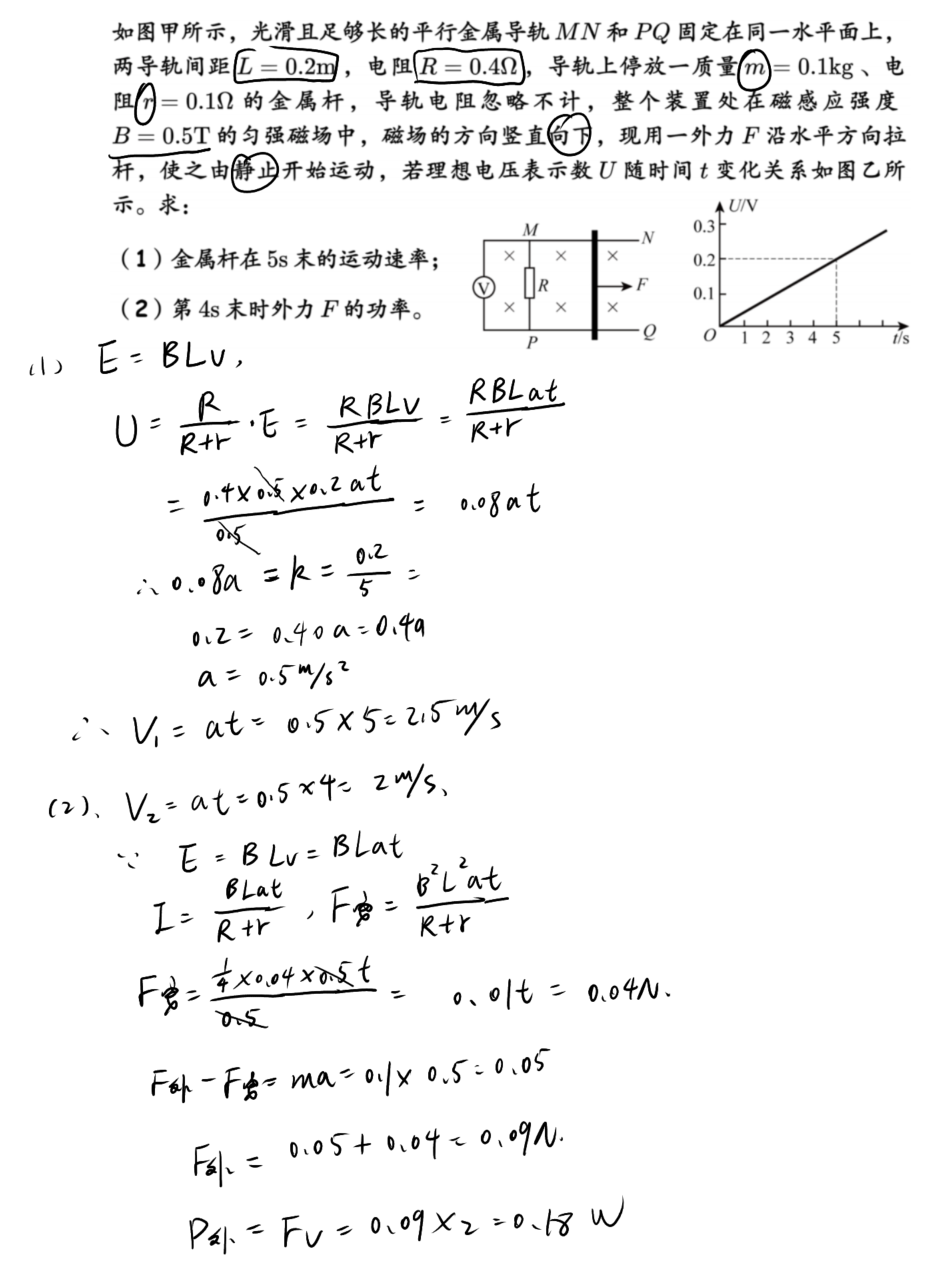 如图甲所示，光滑且足够长的平行金属导轨 MN 和 PQ 固定在同一水平面上，
两导轨间距 L = 0.2m，电阻 R = 0.4Ω，导轨上停放一质量 m = 0.1kg、电
阻 r = 0.1Ω 的金属杆，导轨电阻忽略不计，整个装置处在磁感应强度
B = 0.5T 的匀强磁场中，磁场的方向竖直向下，现用一外力 F 沿水平方向拉
杆，使之由静止开始运动，若理想电压表示数 U 随时间 t 变化关系如图乙所
示。求：
（1）金属杆在 5s 末的运动速率；
（2）第 4s 末时外力 F 的功率。
M
N
V
R
F
P
Q
U/V
0.3
0.2
0.1
O 1 2 3 4 5 t/s
(1) E = BLv,
U = R/(R+r) · E = RBLv/(R+r) = RBLat/(R+r)
= 0.4×0.5×0.2at/0.5 = 0.08at
∴ 0.08a = k = 0.2/5 =
0.2 = 0.40a = 0.4a
a = 0.5m/s²
∴ V₁ = at = 0.5×5 = 2.5m/s
(2)、V₂ = at = 0.5×4 = 2m/s、
∵ E = BLv = BLat
I = BLat/(R+r) , F安 = B²L²at/(R+r)
F安 = ¼×0.04×0.5t/0.5 = 0.01t = 0.04N.
F外 - F安 = ma = 0.1×0.5 = 0.05
F外 = 0.05+0.04 = 0.09N.
P外 = Fv = 0.09×2 = 0.18 W